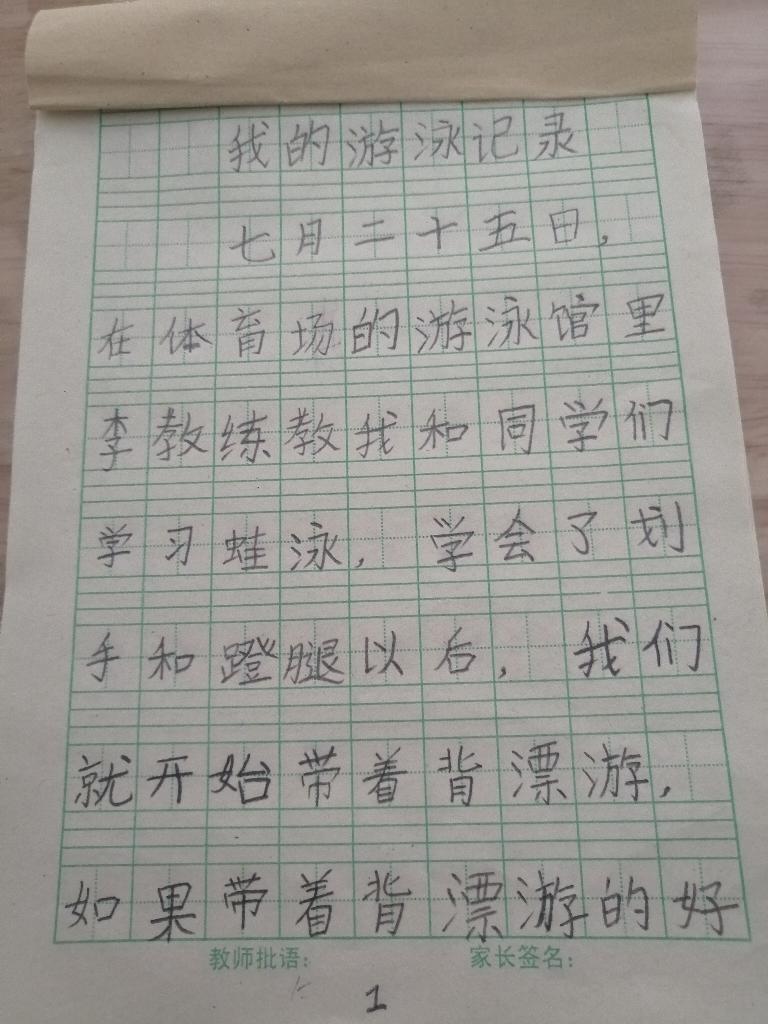 我的游泳记录
七月二十五日，
在体育场的游泳馆里
李教练教我和同学们
学习蛙泳，学会了划
手和蹬腿以后，我们
就开始带着背漂游，
如果带着背漂游的好
教师批语： 家长签名：
1